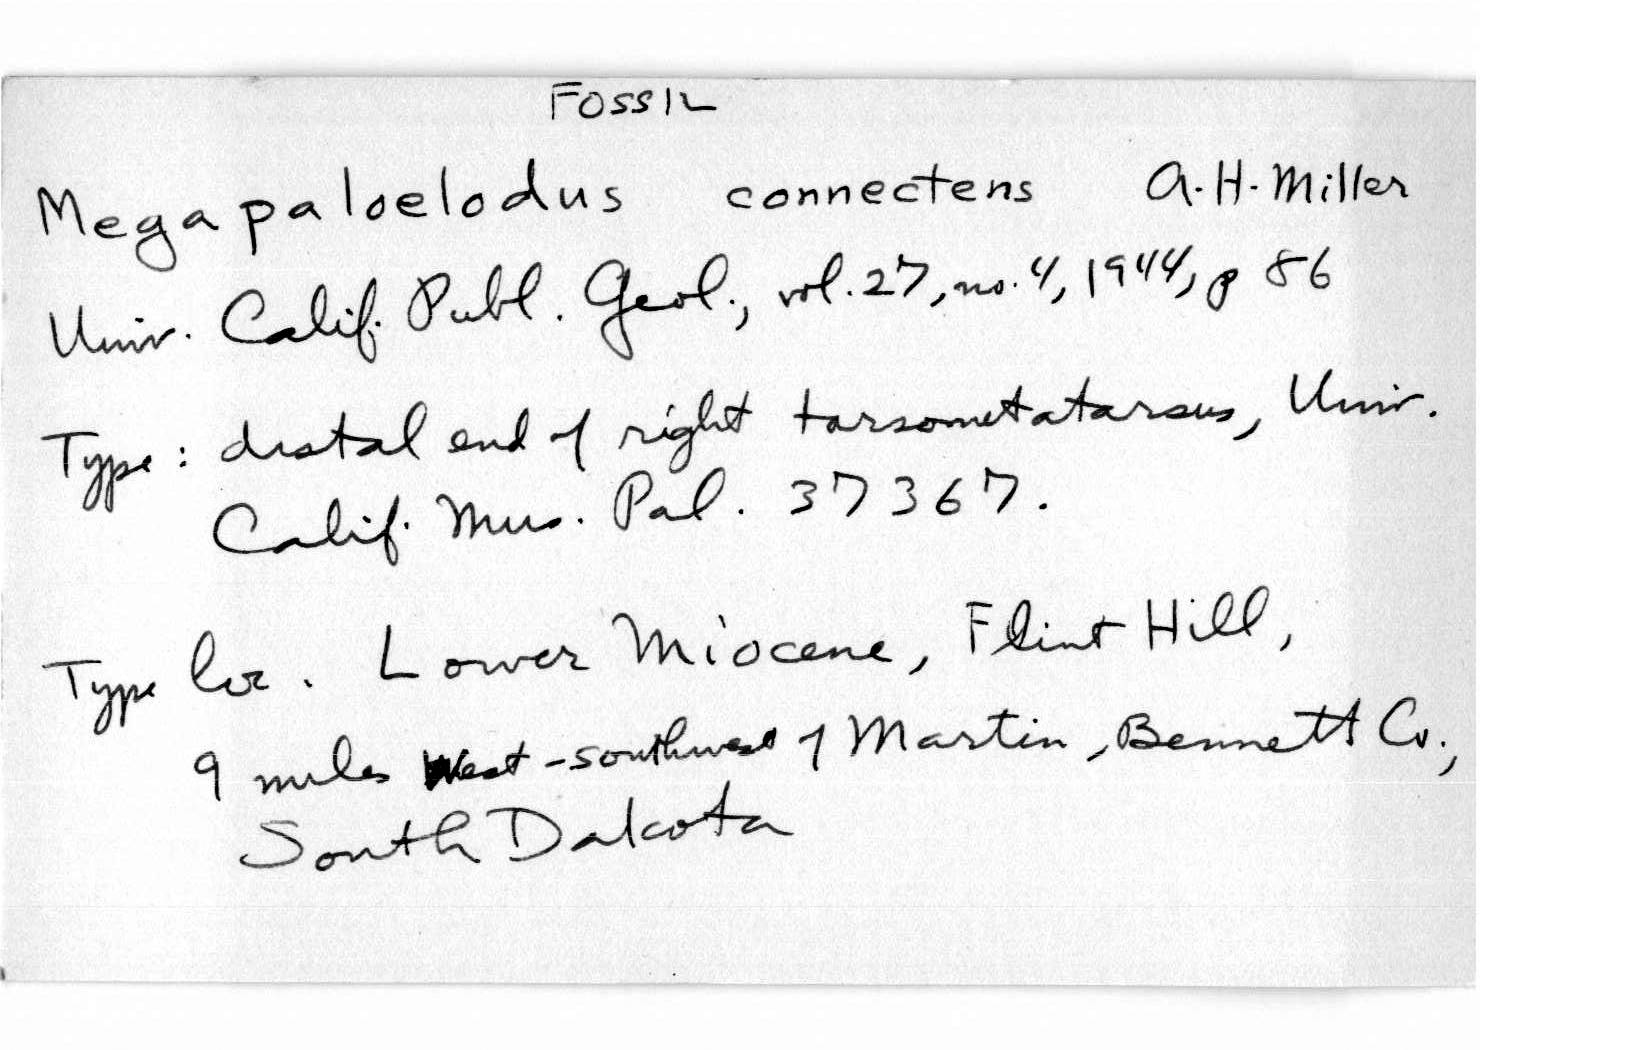 FOSSIL
Megapaloelodus connectens A.H. Miller
Univ. Calif. Publ. Geol., vol. 27, no. 4, 1944, p 86
Type: distal end of right tarsometatarsus, Univ.
Calif. Mus. Pal. 37367.
Type loc. Lower Miocene, Flint Hill,
9 miles West-southwest of Martin, Bennett Co.,
South Dakota